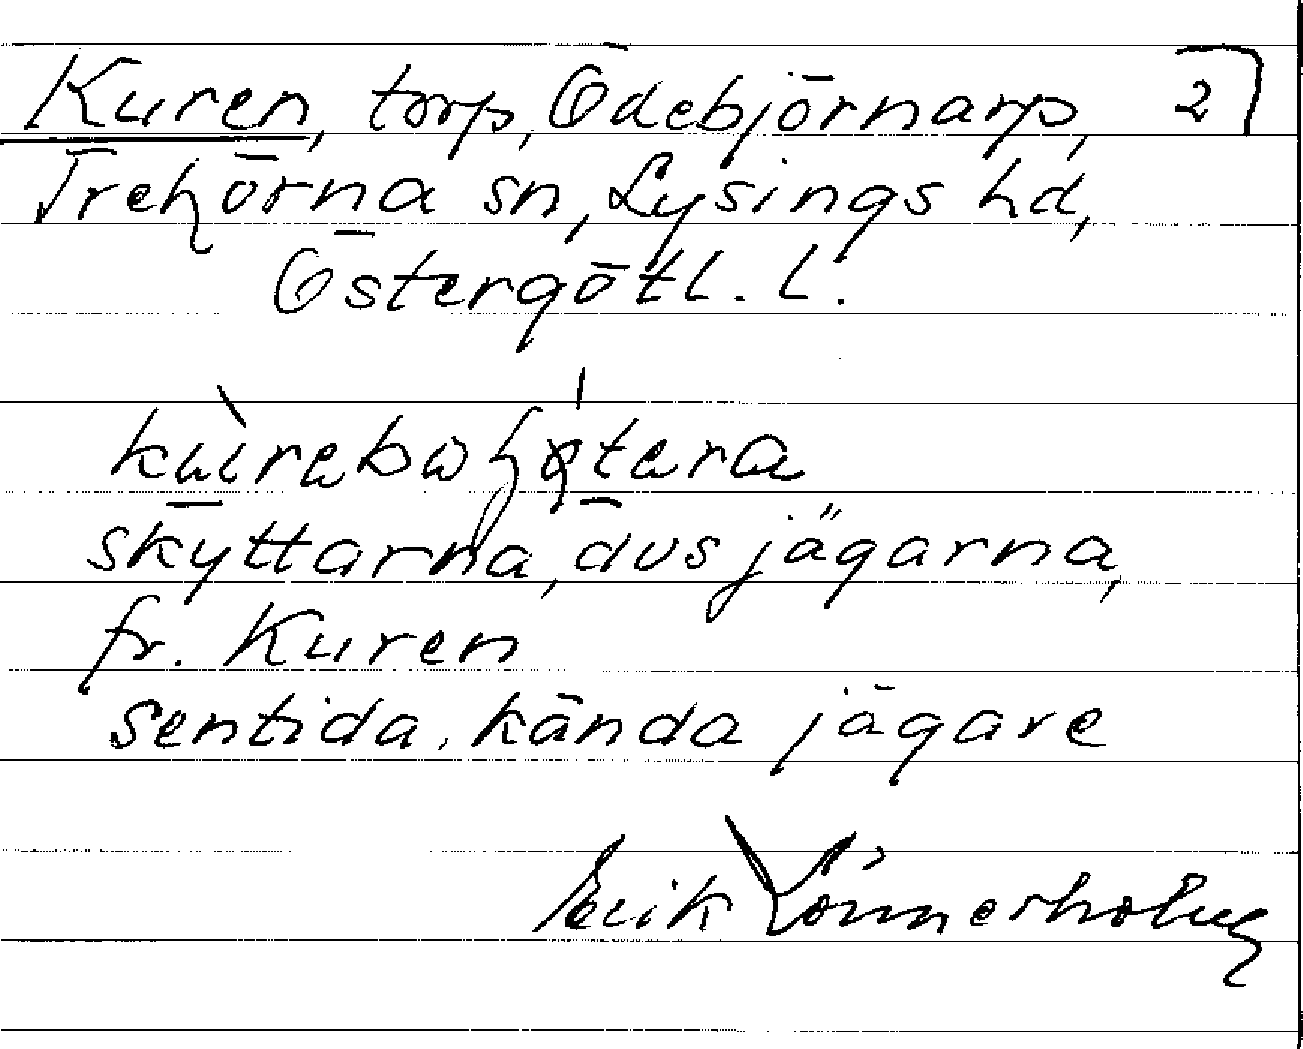 Kuren, torp, Ödebjörnarp, 2
Trehörna sn, Lysings hd,
Östergötl. l.
skyttarna, dvs jägarna,
fr. Kuren
sentida, kända jägare
Erik Lönnerholm